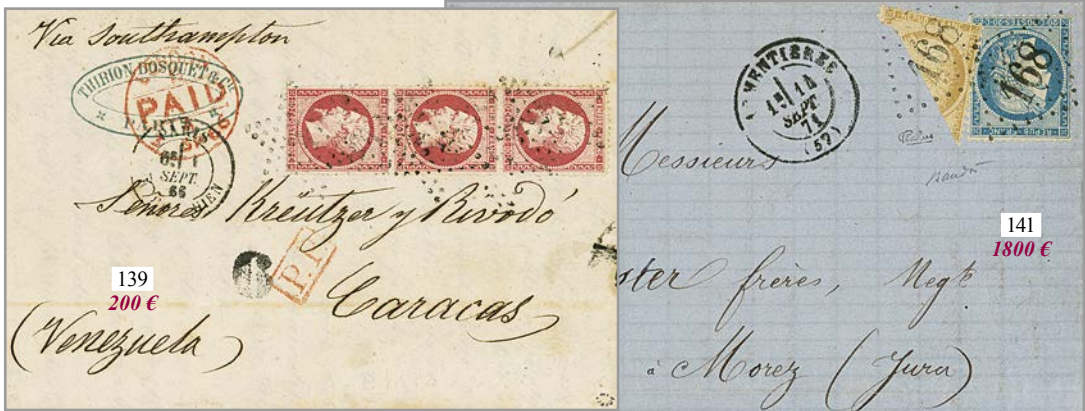 Via Southampton
THIRION DOSQUET & Cie
PAID
PARIS
6E
SEPT.
66
Señores Kreutzer y Rivodó
P.P.
Caracas
(Venezuela)
139
200 €
ARMENTIERES
1E 14
SEPT
71
(57)
168
168
REPUB. FRANC.
Messieurs
ster frères, Negts
à Morez (Jura)
141
1800 €